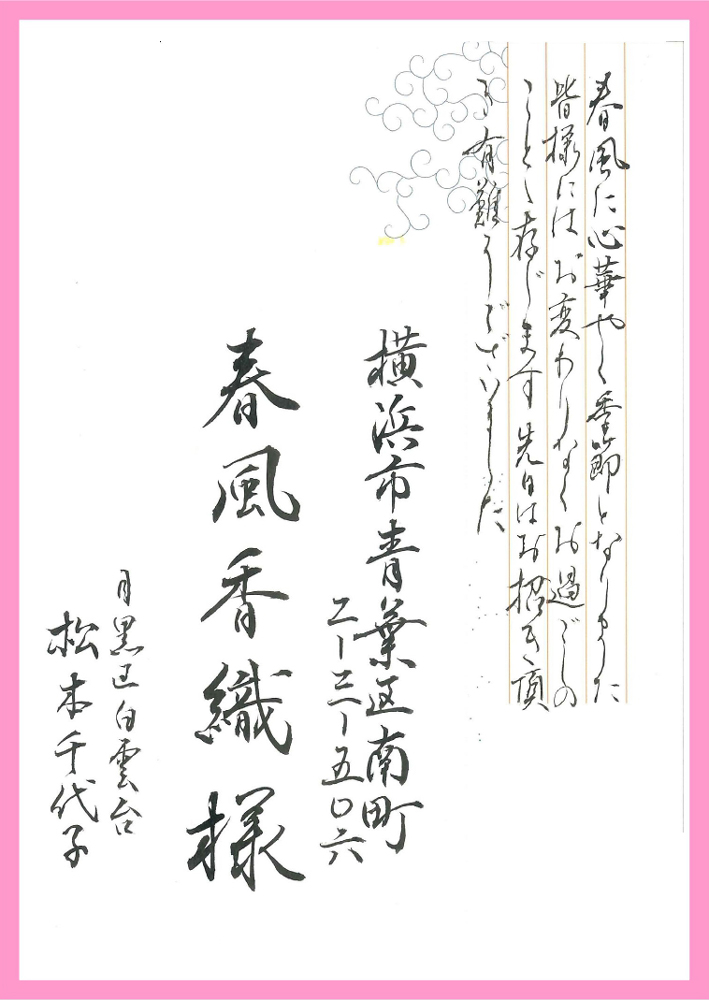 春風に心華やぐ季節となりました
皆様にはお変わりなくお過ごしの
ことゝ存じます先日はお招き頂
き有難うございました
横浜市青葉区南町
二ー三ー五〇六
春風香織様
目黒区白雲台
松本千代子